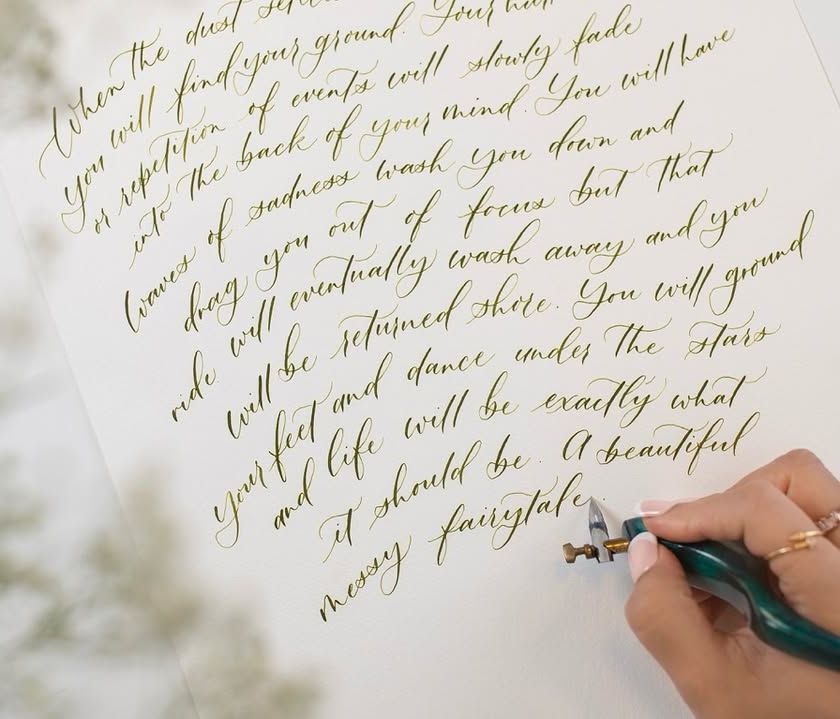 When the dust
you will find your ground. Your
or repetition of events will slowly fade
into the back of your mind. You will have
waves of sadness wash you down and
drag you out of focus but that
ride will eventually wash away and you
will be returned shore. You will ground
your feet and dance under the stars
and life will be exactly what
it should be. A beautiful
messy fairytale.